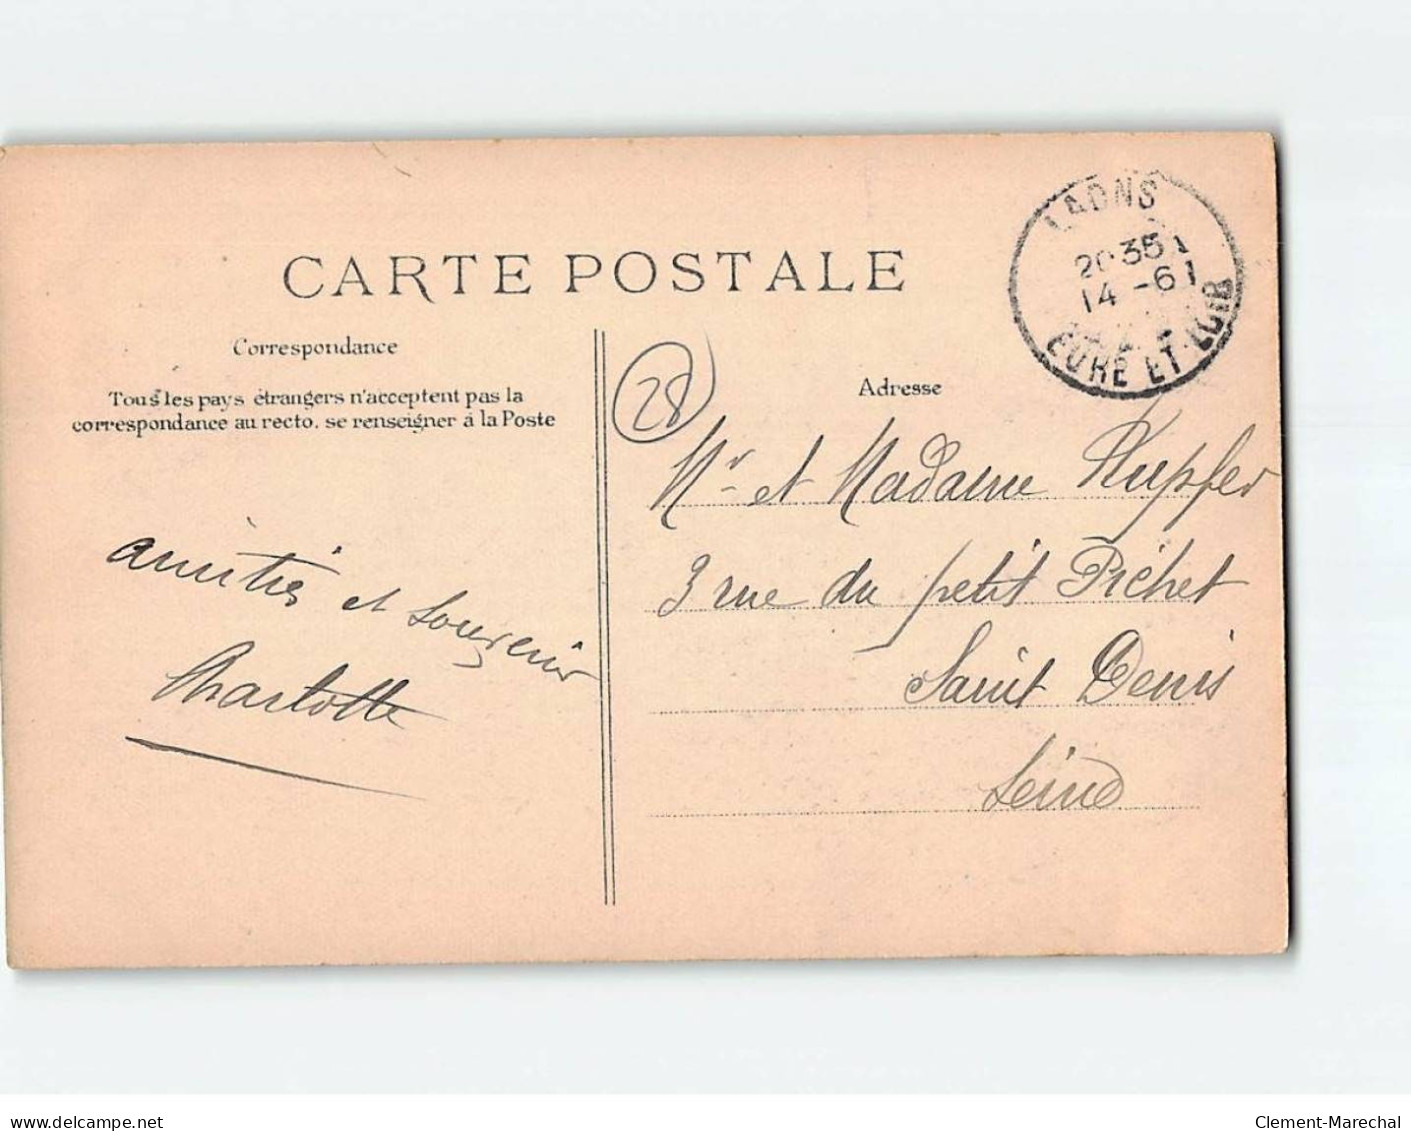 LAONS
20 35
14 -6
EURE ET-LOIR
CARTE POSTALE
Correspondance
Tous les pays étrangers n'acceptent pas la
correspondance au recto. se renseigner à la Poste
28
Adresse
Mr et Madame Kupfer
3 rue du petit Pichet
Saint Denis
Seine
amitiés et souvenir
Charlotte
delcampe.net
Clement-Marechal